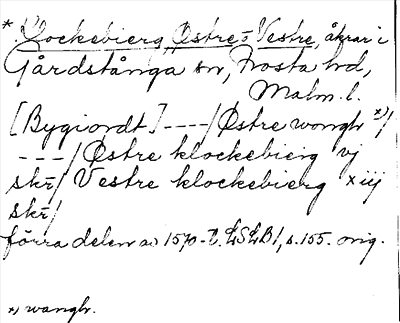 * Klockebierg, Østre- Vestre, åkrar i
Gårdstånga sn, Frosta hd,
Malm. l.
[Bygiordt] ----/ Østre wongh x)/
---/ Østre klockebierg vj
skr/ Vestre klockebierg xiij
skr/
förra delen av 1570-t. LSLB1, s. 155. orig.
x) wangh.